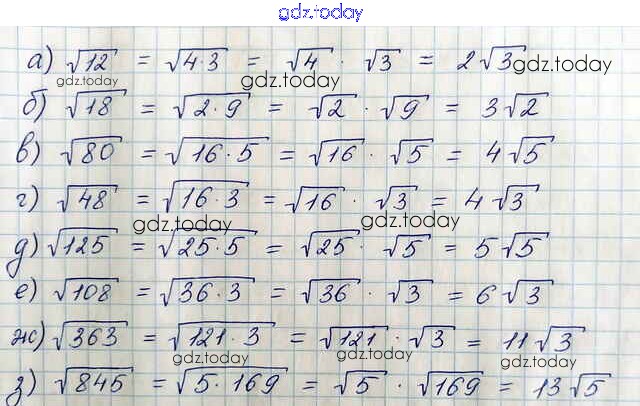 gdz.today
а) √12 = √4·3 = √4 · √3 = 2√3
gdz.today gdz.today gdz.today
б) √18 = √2·9 = √2 · √9 = 3√2
в) √80 = √16·5 = √16 · √5 = 4√5
г) √48 = √16·3 = √16 · √3 = 4√3
gdz.today gdz.today
д) √125 = √25·5 = √25 · √5 = 5√5
е) √108 = √36·3 = √36 · √3 = 6√3
ж) √363 = √121·3 = √121 · √3 = 11√3
gdz.today gdz.today gdz.today
з) √845 = √5·169 = √5 · √169 = 13√5